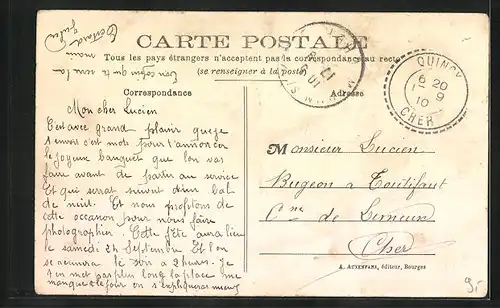 CARTE POSTALE
Tous les pays étrangers n'acceptent pas la correspondance au recto
(se renseigner à la poste)
Correspondance
Adresse
Mon cher Lucien
C'est avec grand plaisir que je
t'envoi c'est mots pour t'annoncer
le joyeux banquet que l'on vas
faire avant de partir au service
Et qui serat suivit d'un bal
de nuit. Et nous profitons de
cette occanon pour nous faire
photographier. Cette fête aura lieu
le samedi 24 Septembre Et l'on
se reunira le soir a 2 hures. Je
t'en met pas plus long la place me
manque le jour on s'expliquera mieux
Monsieur Lucien
Bugeon a Toutifaut
Cne de Limeux
Cher
QUINCY
6 20
9
10
CHER
A. AUXENFANS, éditeur, Bourges
9,-